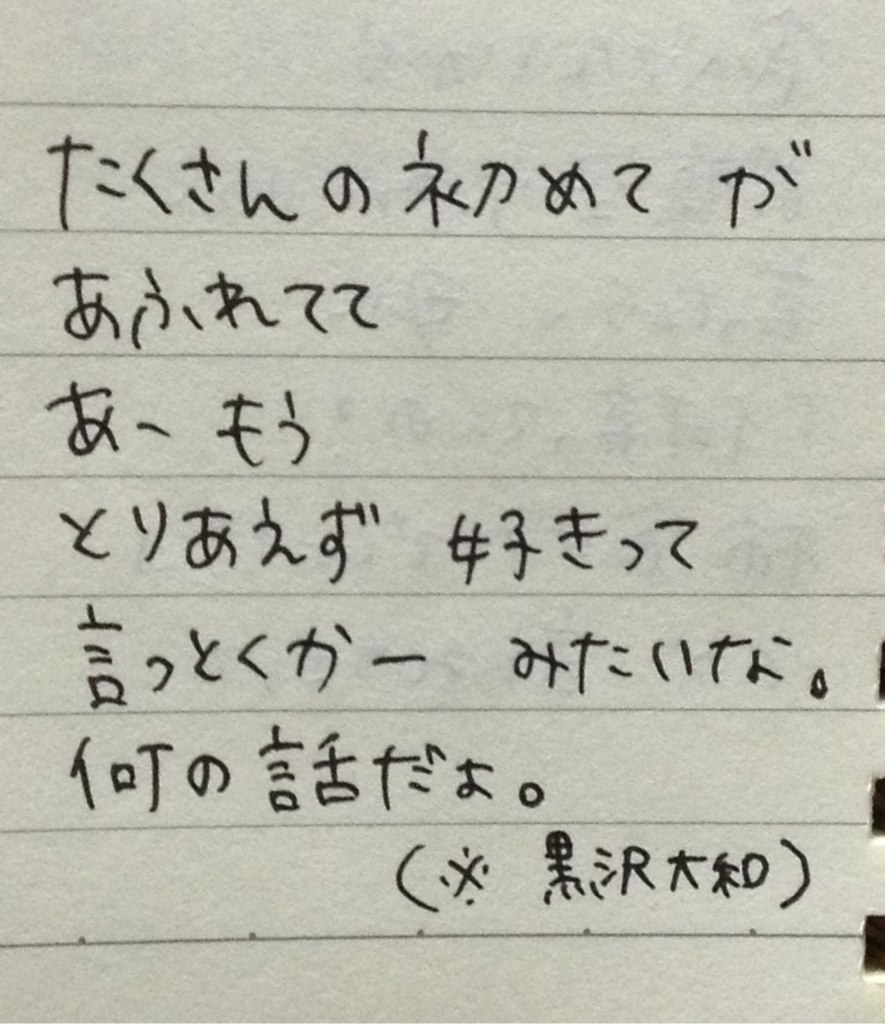 たくさんの初めてが
あふれてて
あーもう
とりあえず 好きって
言っとくかー みたいな。
何の話だよ。
(※ 黒沢大和)